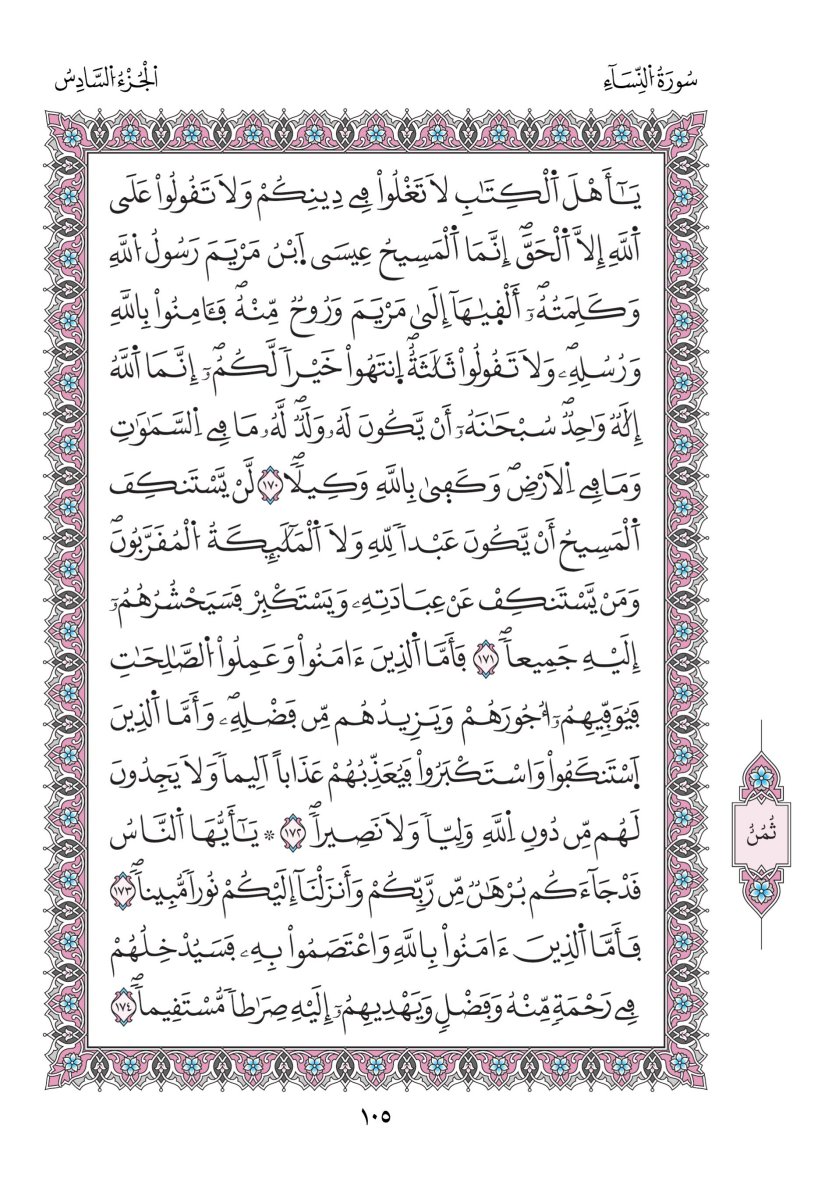 سُورَةُ اُلنِّسَآءِ
اَلْجُزْءُ اُلسَّادِسُ
يَٰٓأَهْلَ اَ۬لْكِتَٰبِ لَا تَغْلُواْ فِے دِينِكُمْ وَلَا تَقُولُواْ عَلَى
اَ۬للَّهِ إِلَّا اَ۬لْحَقَّۖ إِنَّمَا اَ۬لْمَسِيحُ عِيسَى اَ۪بْنُ مَرْيَمَ رَسُولُ اُ۬للَّهِ
وَكَلِمَتُهُۥٓۖ أَلْقَيٰهَآ إِلَىٰ مَرْيَمَ وَرُوحٞ مِّنْهُۖ فَـَٔامِنُواْ بِاللَّهِ
وَرُسُلِهِۦۖ وَلَا تَقُولُواْ ثَلَٰثَةٌۖ اِ۪نتَهُواْ خَيْراٗ لَّكُمُۥٓۖ إِنَّمَا اَ۬للَّهُ
إِلَٰهٞ وَٰحِدٞۖ سُبْحَٰنَهُۥٓ أَنْ يَّكُونَ لَهُۥ وَلَدٞۖ لَّهُۥ مَا فِے اِ۬لسَّمَٰوَٰتِ
وَمَا فِے اِ۬لَارْضِۖ وَكَف۪يٰ بِاللَّهِ وَكِيلاٗۖ ١٧٠ لَّنْ يَّسْتَنكِفَ
اَ۬لْمَسِيحُ أَنْ يَّكُونَ عَبْداٗ لِّلهِ وَلَا اَ۬لْمَلَٰٓئِكَةُ اُ۬لْمُقَرَّبُونَۖ
وَمَنْ يَّسْتَنكِفْ عَنْ عِبَادَتِهِۦ وَيَسْتَكْبِرْ فَسَيَحْشُرُهُمُۥٓ
إِلَيْهِ جَمِيعاٗۖ ١٧١ فَأَمَّا اَ۬لذِينَ ءَامَنُواْ وَعَمِلُواْ اُ۬لصَّٰلِحَٰتِ
فَيُوَفِّيهِمُۥٓ أُجُورَهُمْ وَيَزِيدُهُم مِّن فَضْلِهِۦۖ وَأَمَّا اَ۬لذِينَ
اَ۪سْتَنكَفُواْ وَاسْتَكْبَرُواْ فَيُعَذِّبُهُمْ عَذَاباً اَلِيماٗ وَلَا يَجِدُونَ
لَهُم مِّن دُونِ اِ۬للَّهِ وَلِيّاٗ وَلَا نَصِيراٗۖ ١٧٢ ۞ يَٰٓأَيُّهَا اَ۬لنَّاسُ
ثُمُنُ
قَدْ جَآءَكُم بُرْهَٰنٞ مِّن رَّبِّكُمْ وَأَنزَلْنَآ إِلَيْكُمْ نُوراٗ مُّبِيناٗۖ ١٧٣
فَأَمَّا اَ۬لذِينَ ءَامَنُواْ بِاللَّهِ وَاعْتَصَمُواْ بِهِۦ فَسَيُدْخِلُهُمْ
فِے رَحْمَةٖ مِّنْهُ وَفَضْلٖ وَيَهْدِيهِمُۥٓ إِلَيْهِ صِرَٰطاٗ مُّسْتَقِيماٗۖ ١٧٤
١٠٥